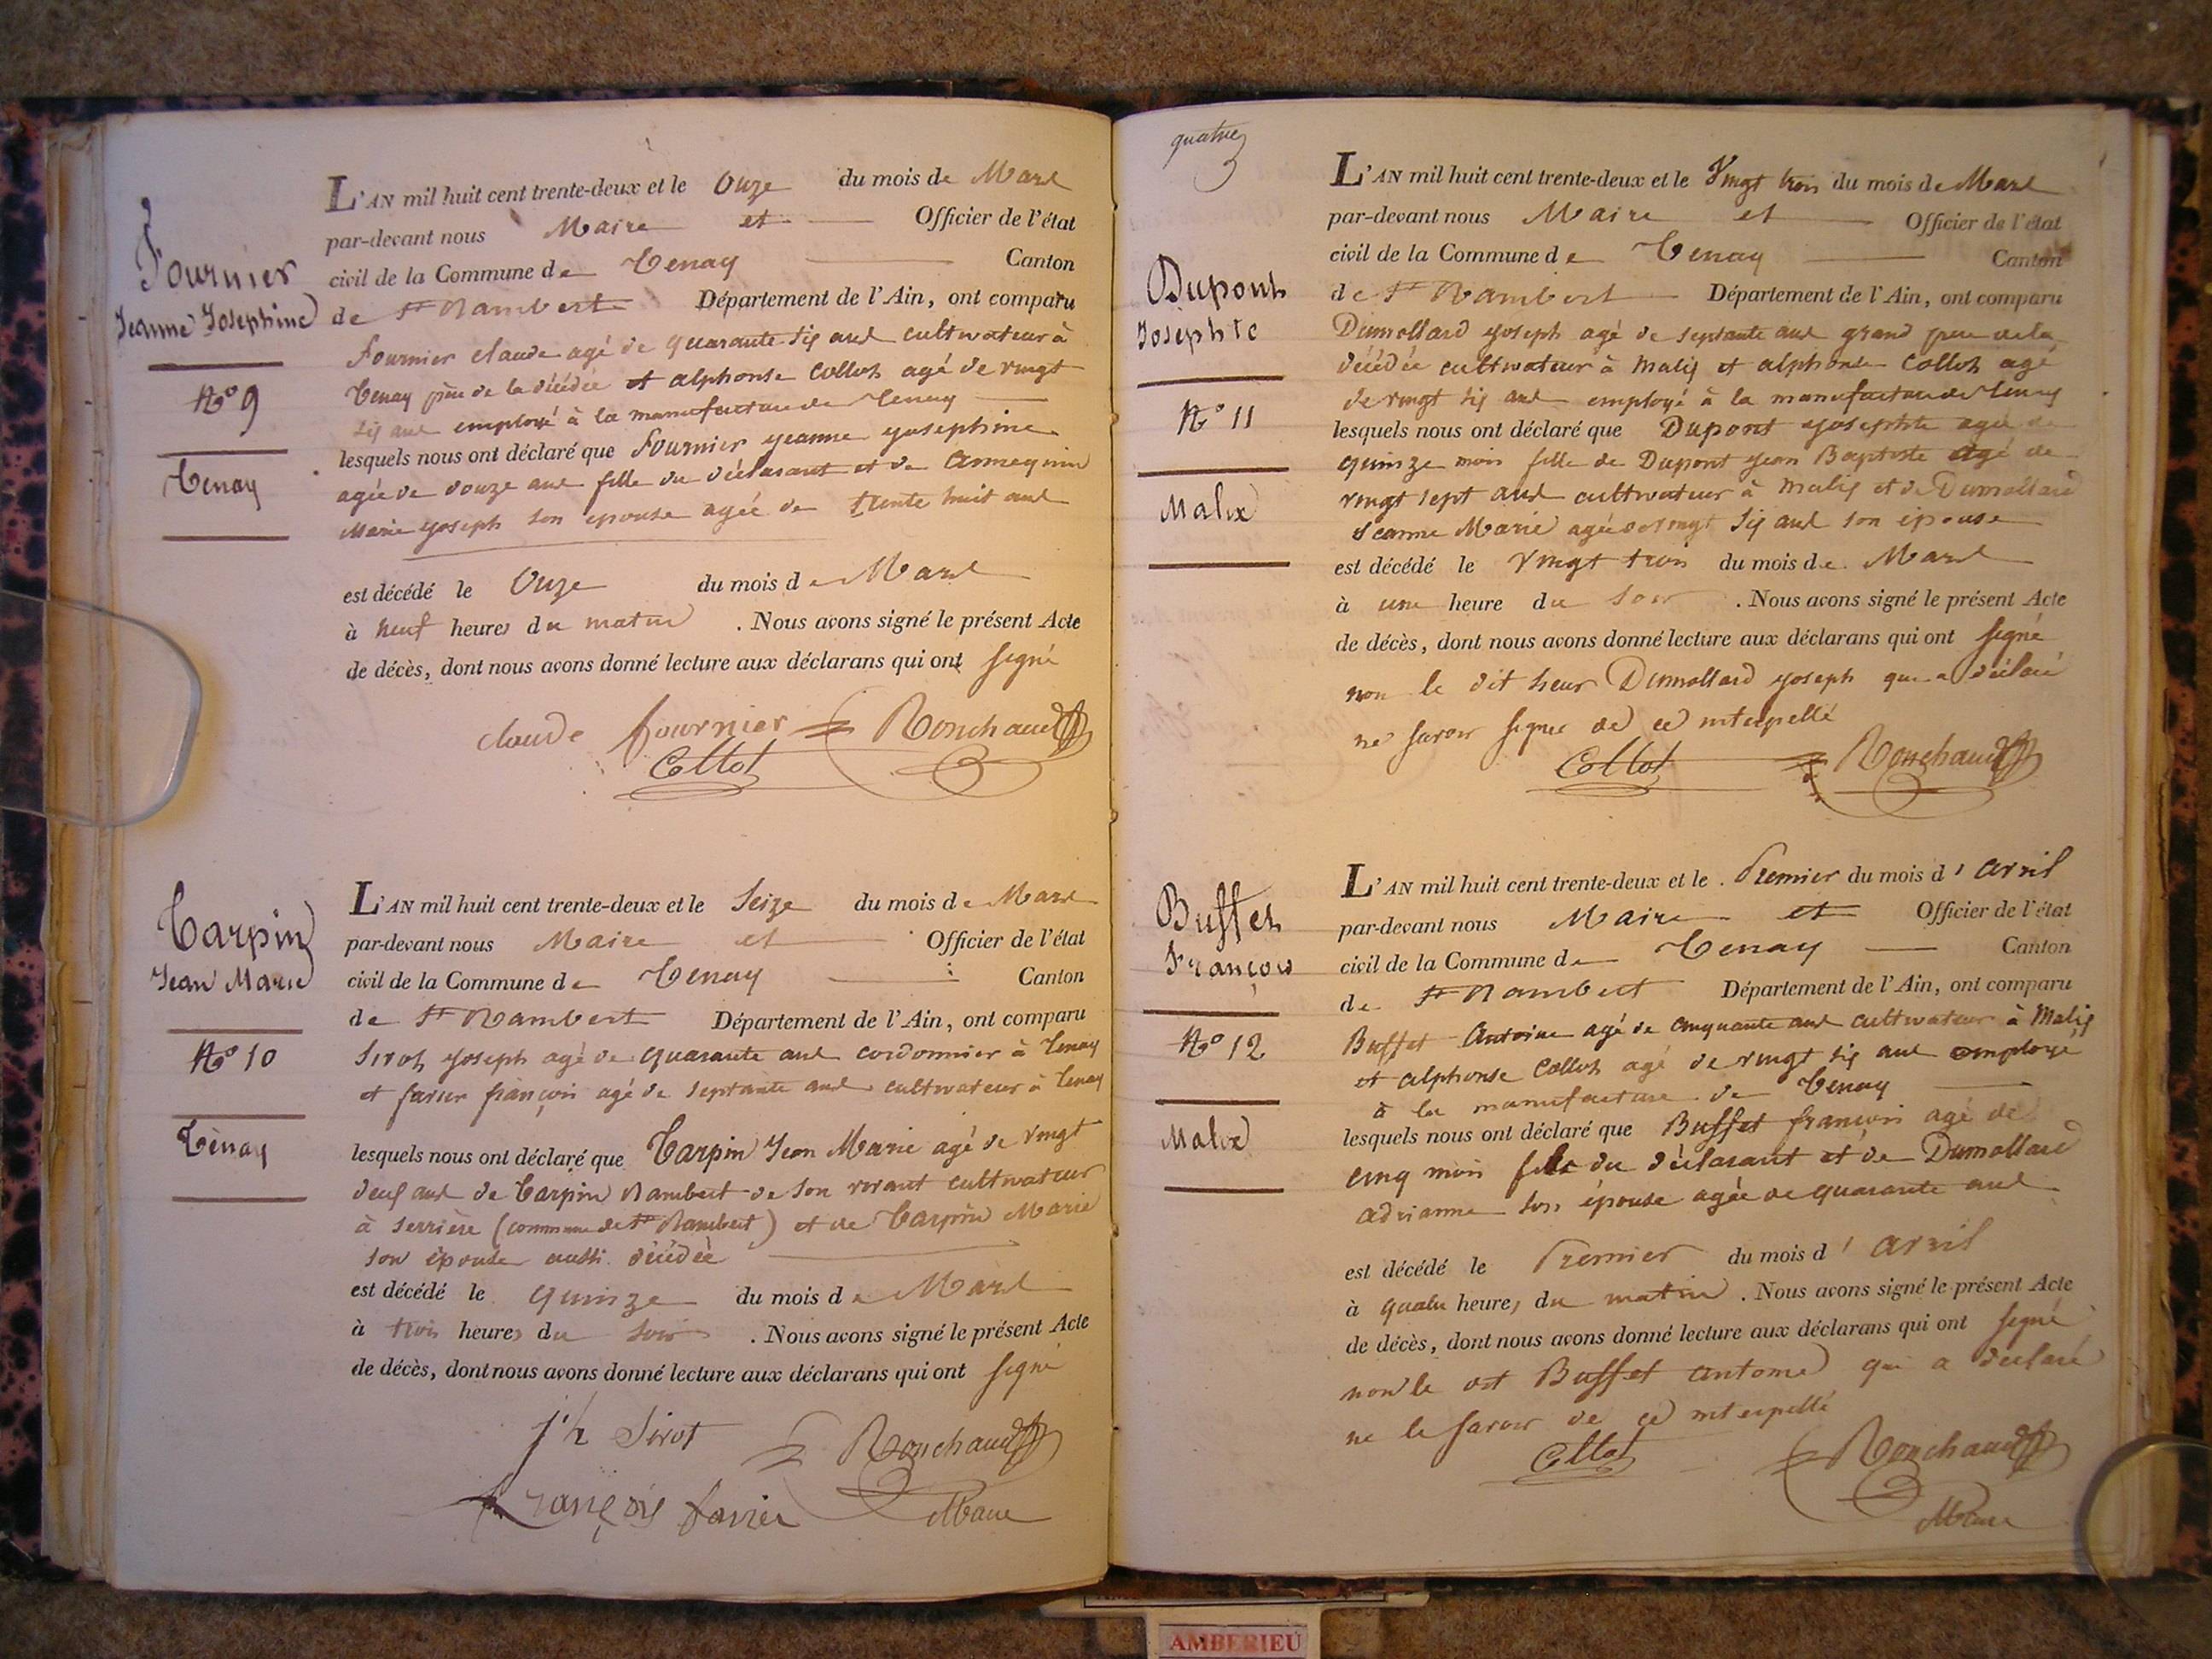 Fournier
Jeanne Josephine
No 9
Tenay
L'AN mil huit cent trente-deux et le Onze du mois de Mars
par-devant nous Maire et Officier de l'état
civil de la Commune de Tenay Canton
de St Rambert Département de l'Ain, ont comparu
fournier claude agé de quarante six ans cultivateur à
Tenay père de la décédée et alphonse Collot agé de vingt
six ans employé à la manufacture de Tenay
lesquels nous ont déclaré que fournier jeanne josephine
agée de douze ans fille du déclarant et de
Marie joseph son epouse agée de trente huit ans
est décédé le Onze du mois de Mars
à neuf heures du matin . Nous avons signé le présent Acte
de décès, dont nous avons donné lecture aux déclarans qui ont signé
claude fournier Ronchaud
Collot
Tarpin
Jean Marie
No 10
Tenay
L'AN mil huit cent trente-deux et le Seize du mois de Mars
par-devant nous Maire et Officier de l'état
civil de la Commune de Tenay Canton
de St Rambert Département de l'Ain, ont comparu
Sirot joseph agé de quarante ans cordonnier à Tenay
et favier françois agé de septante ans cultivateur à Tenay
lesquels nous ont déclaré que Tarpin Jean Marie agé de vingt
deux ans de Tarpin Rambert de son vivant cultivateur
à serrière (commune de St Rambert) et de Tarpin Marie
son épouse aussi décédée
est décédé le quinze du mois de Mars
à trois heures du soir . Nous avons signé le présent Acte
de décès, dont nous avons donné lecture aux déclarans qui ont signé
jh Sirot Ronchaud
françois favier Maire
quatre
Dupont
Josephte
No 11
Malix
L'AN mil huit cent trente-deux et le Vingt trois du mois de Mars
par-devant nous Maire et Officier de l'état
civil de la Commune de Tenay Canton
de St Rambert Département de l'Ain, ont comparu
Dumollard joseph agé de septante ans grand père de la
décédée cultivateur à Malix et alphonse Collot agé
de vingt six ans employé à la manufacture de Tenay
lesquels nous ont déclaré que Dupont josephte agée de
quinze mois fille de Dupont jean Baptiste agé de
vingt sept ans cultivateur à Malix et de Dumollard
Jeanne Marie agée de vingt six ans son épouse
est décédé le vingt trois du mois de Mars
à une heure du soir . Nous avons signé le présent Acte
de décès, dont nous avons donné lecture aux déclarans qui ont signé
non le dit sieur Dumollard joseph qui a déclaré
ne savoir signer de ce interpellé
Collot Ronchaud
Buffet
François
No 12
Malix
L'AN mil huit cent trente-deux et le Premier du mois d'avril
par-devant nous Maire et Officier de l'état
civil de la Commune de Tenay Canton
de St Rambert Département de l'Ain, ont comparu
Buffet Antoine agé de cinquante ans cultivateur à Malix
et alphonse Collot agé de vingt six ans employé
à la manufacture de Tenay
lesquels nous ont déclaré que Buffet françois agé de
cinq mois fils du déclarant et de Dumollard
adrianne son épouse agée de quarante ans
est décédé le Premier du mois d'avril
à quatre heures du matin . Nous avons signé le présent Acte
de décès, dont nous avons donné lecture aux déclarans qui ont signé
non le dit Buffet antoine qui a déclaré
ne le savoir de ce interpellé
Collot Ronchaud
Maire
AMBERIEU